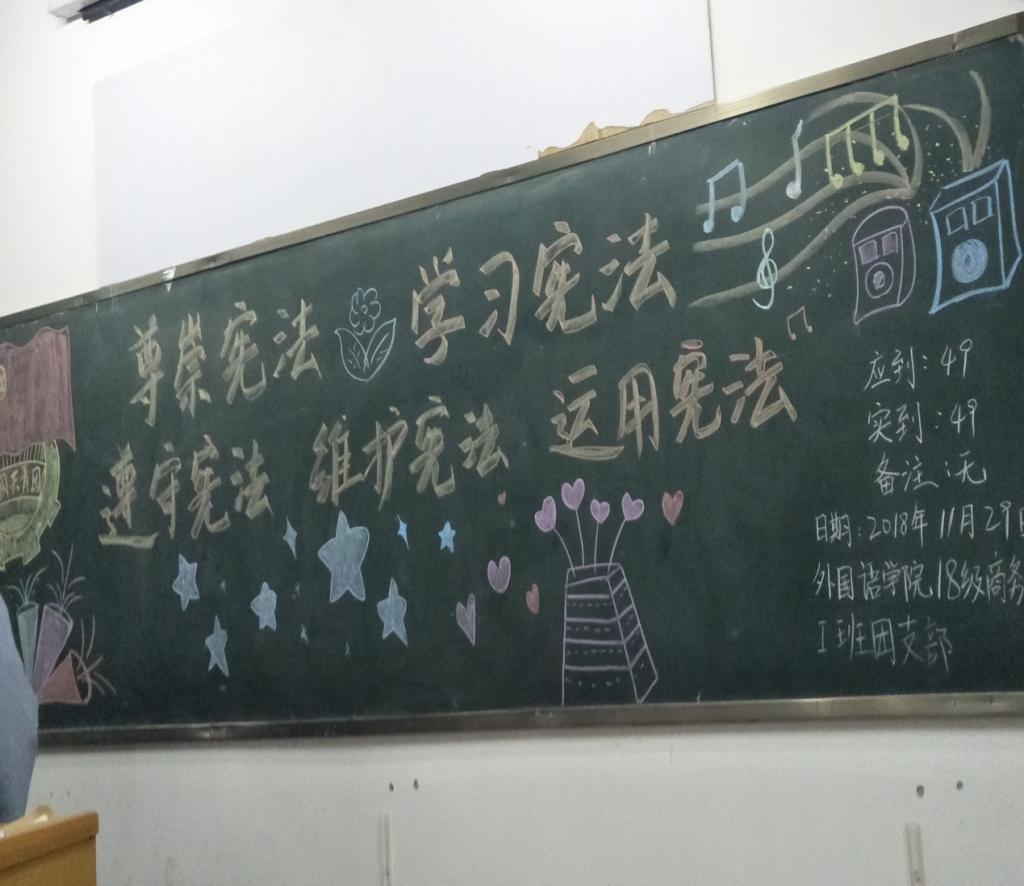 尊崇宪法 学习宪法
遵守宪法 维护宪法 运用宪法
应到:49
实到:49
备注:无
日期:2018年11月29日
外国语学院18级商务
1班团支部